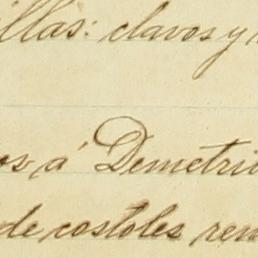 illas: clavos y
os á Demetrio
de costoles rem